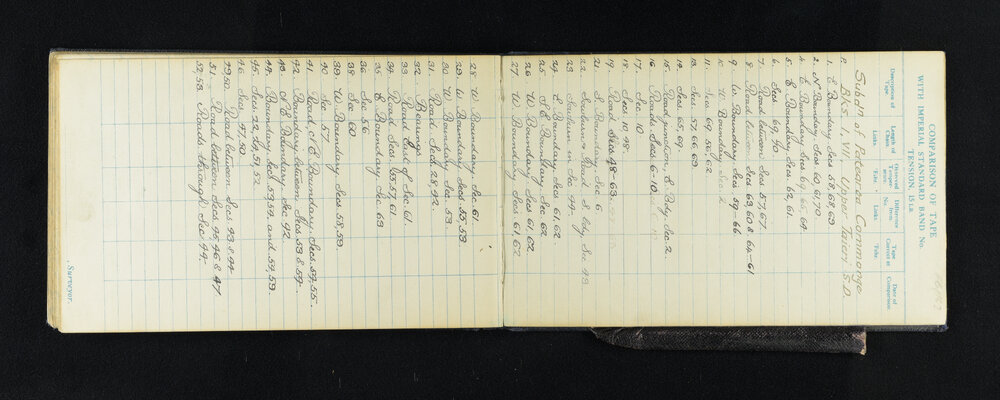 COMPARISON OF TAPE
WITH IMPERIAL STANDARD BAND No.
TENSION 15 LB.
Description of Tape.
Length of Chain Links.
Observed Temperature Fah.
Difference No. from Links.
Tape Correct at Fah.
Date of Comparison
Subdn of Puketoi Commonage
P. Bks. I, VII, Upper Taieri S.D.
1. E Boundary Secs 58, 68, 69
2. N Boundary Secs 60, 61, 70.
4. E Boundary Secs 69, 65, 64.
5. E Boundary Secs 62, 61.
6. Secs 69, 70
7. Road between Secs 57, 67.
8. Road between Secs 63, 60 & 64-61
9. W Boundary Secs 59-66
10. W Boundary Sec 2
11. Secs 69, 56, 62
13. Secs 57, 66, 69.
14. Secs 65, 69.
15. Road formation, E. Bdy. Sec 2.
16. Roads Secs 6-10
17. Sec. 10
18. Secs 10, 48.
19. Road Secs 48-63.
21. S Boundary, Sec 6
22. Southern Road S Bdy Sec 43
23. Section in Sec 44.
24. S Boundary Secs 61, 62
25. S.E Boundary Sec 62
26. W Boundary Secs 61, 62
27. W Boundary Secs 61, 62
28. W Boundary Sec 61.
29. W. Boundary Secs 53, 53
30. W Boundary Sec 53.
31. Road. Secs 28, 42.
32. Bearings
33. Road East of Sec 61
34. Road Secs. 60, 57, 61
35. E Boundary Sec 63
36. Sec 56
38. Sec 60
39. W Boundary Secs 58, 59.
40. Sec 57.
41. Road N E Boundary. Secs. 54, 55.
42. Boundary between Secs 53 & 54.
43. N E Boundary Sec 42.
44. Boundary Secs 53, 54 and 54, 59.
45. Secs 22, 28, 51, 52
46. Secs 47, 50
49, 50. Road between Secs 43 & 44
51. Road between Secs 45, 46 & 47
52, 53. Roads through Sec 44.
, Surveyor.